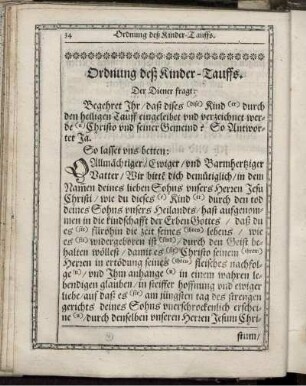 34 Ordnung deß Kinder-Tauffs.
Ordnung deß Kinder-Tauffs.
Der Diener fragt:
Begehret Ihr / daß dises (dise) Kind (er) durch
den heiligen Tauff eingeleibet und verzeichnet wer-
de (n) Christo und seiner Gemeind? So Antwor-
tet Ja.
So lasset uns betten:
Allmächtiger / Ewiger / und Barmhertziger
Vatter / Wir bitten dich demütiglich / in dem
Namen deines lieben Sohns unsers Herren Jesu
Christi / wie du dieses Kind (er) durch den tod
deines Sohns unsers Heilandts / hast aufgenom-
men in die kindschafft der Erben Gottes / daß du
es (sie) fürohin die zeit seines (ihres) lebens / wie
es (sie) widergeboren ist (sind) / durch den Geist be-
halten wöllest / damit es (sie) Christo seinem (ihrem)
Herren in ertödung seines (ihres) fleisches nachfol-
ge (n) / und Ihm anhange (n) in einem wahren le-
bendigen glauben / in steiffer hoffnung und ewiger
liebe / auf daß es (sie) am jüngsten tag des strengen
gerichts deines Sohns unerschrockenlich erschei-
ne (n) / durch denselben unseren Herren Jesum Chri-
stum /